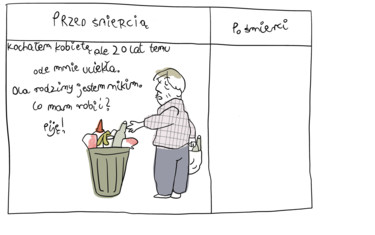 PRZED ŚMIERCIĄ
Po śmierci
Kochałem kobietę, ale 20 lat temu
ode mnie uciekła.
Dla rodziny jestem nikim.
Co mam robić?
Piję!